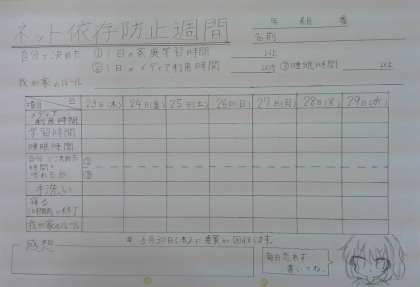 ネット依存防止週間
年 組 番
名前
自分で決めた ①1日の家庭学習時間
②1日のメディア利用時間 ③睡眠時間
我が家のルール
項目 日 23日(木) 24日(金) 25日(土) 26日(日) 27日(月) 28日(火) 29日(水)
メディア利用時間
学習時間
睡眠時間
自分で決めた時間を守れたか ① ②
手洗い
寝る 時間前に終了
我が家のルール
※ 5月30日(木)に 回収します。
感想
毎日忘れず
書いてね。